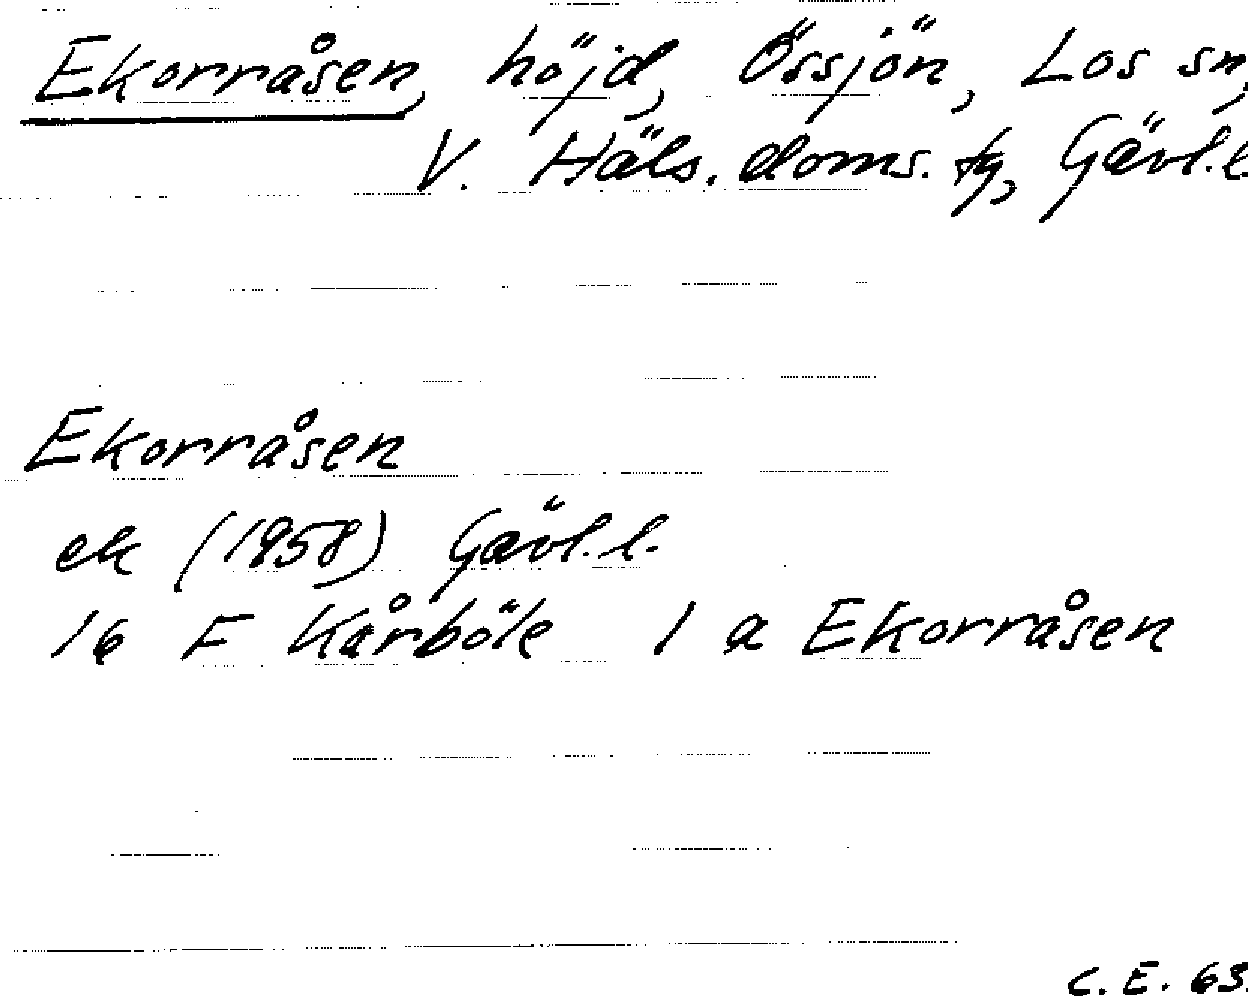 Ekorråsen, höjd, Össjön, Los sn,
V. Häls. doms. fg, Gävl.l.
Ekorråsen
ek (1958) Gävl.l.
16 F Kårböle 1 a Ekorråsen
C.E. 63.